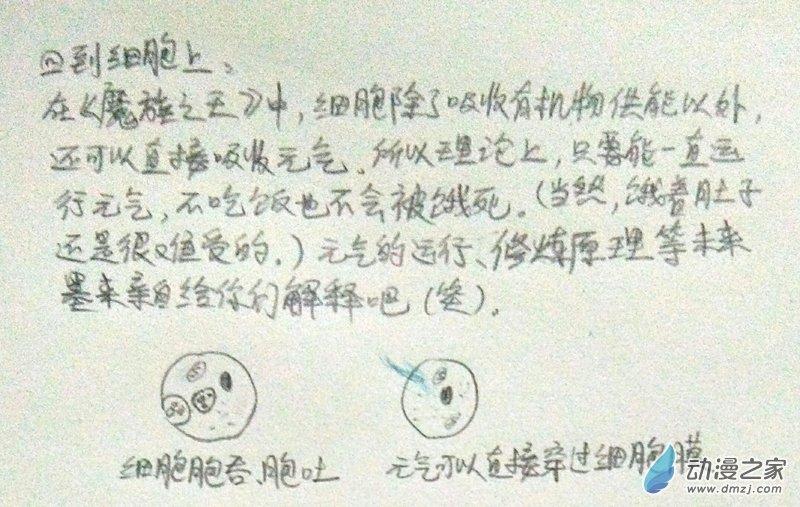 回到细胞上。
在《魔族之王》中，细胞除了吸收有机物供能以外，
还可以直接吸收元气。所以理论上，只要能一直运
行元气，不吃饭也不会被饿死。（当然，饿着肚子
还是很难受的。）元气的运行、修炼原理等未来
墨来亲自给你们解释吧（笑）。
细胞胞吞、胞吐
元气可以直接穿过细胞膜
动漫之家
www.dmzj.com